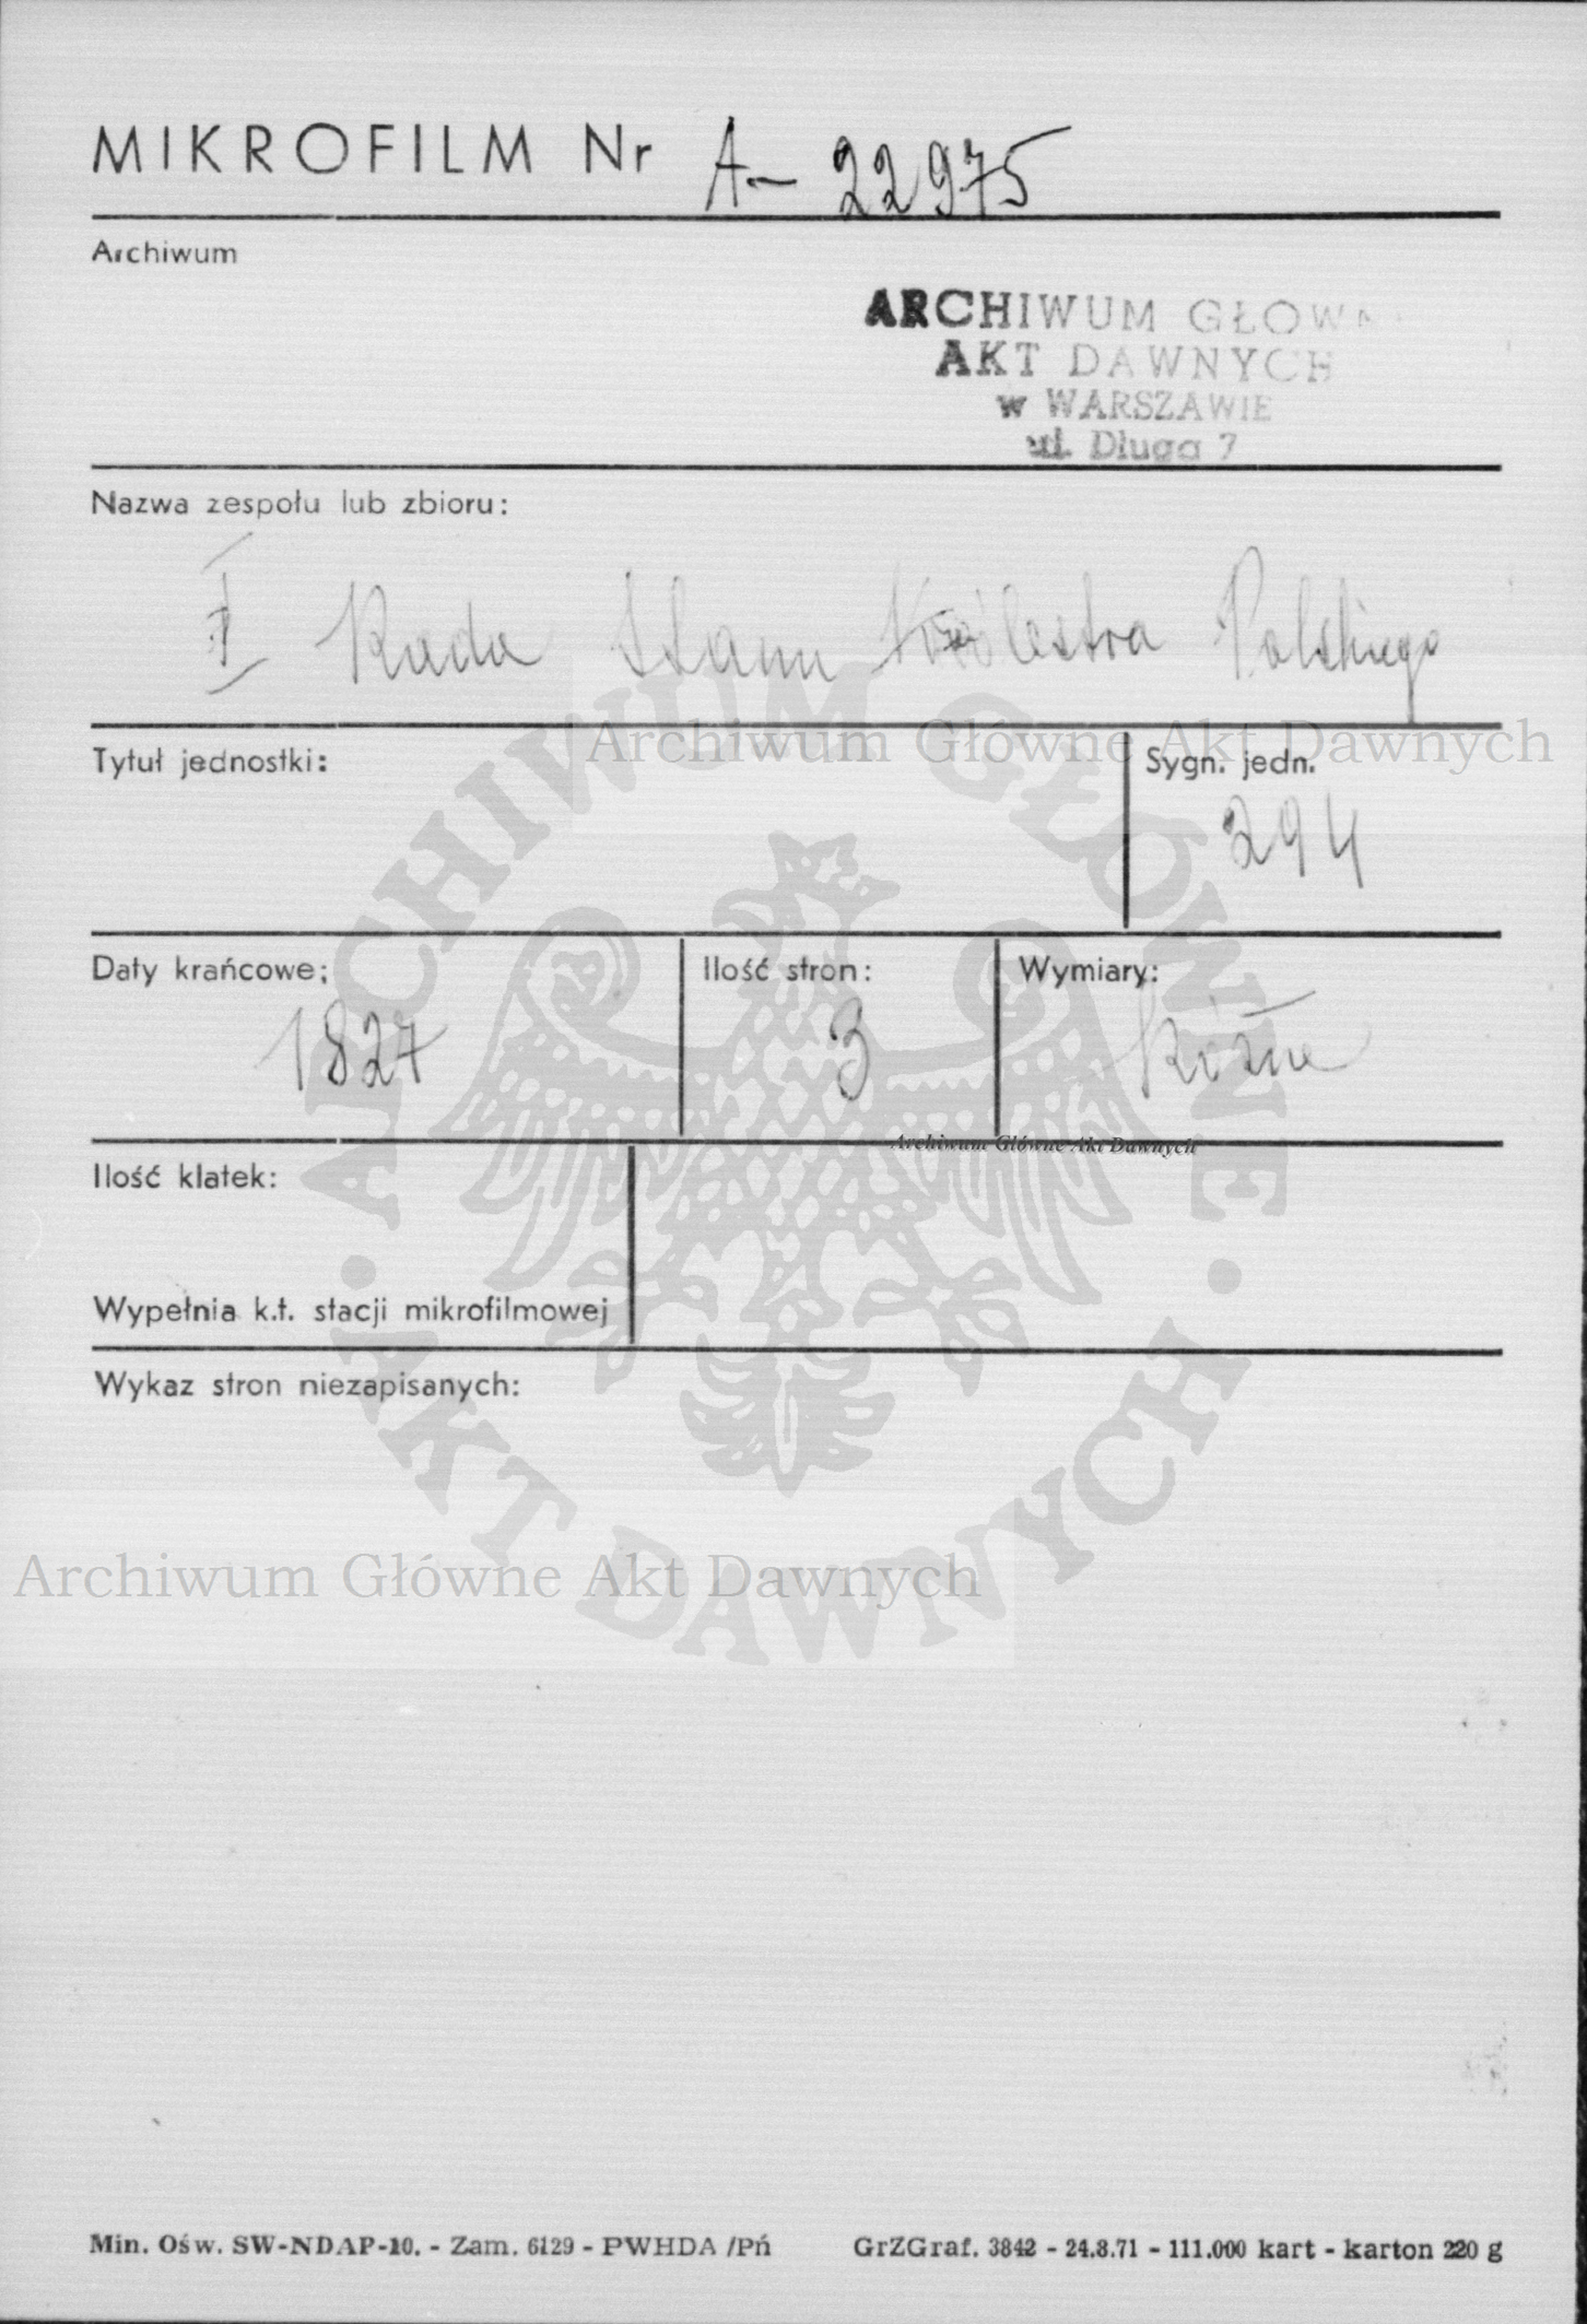 MIKROFILM Nr A- 22975
Archiwum
ARCHIWUM GŁOWN
AKT DAWNYCH
w WARSZAWIE
ul. Długa 7
Nazwa zespołu lub zbioru:
I Rada Stanu Królestwa Polskiego
Archiwum Główne Akt Dawnych
Tytuł jednostki:
Sygn. jedn.
294
Daty krańcowe;
1827
Ilość stron:
3
Wymiary:
Różne
Archiwum Główne Akt Dawnych
Ilość klatek:
Wypełnia k.t. stacji mikrofilmowej
Wykaz stron niezapisanych:
ARCHIWUM GŁÓWNE
AKT DAWNYCH
Archiwum Główne Akt Dawnych
Min. Ośw. SW-NDAP-10. - Zam. 6129 - PWHDA /Pń
GrZGraf. 3842 - 24.8.71 - 111.000 kart - karton 220 g